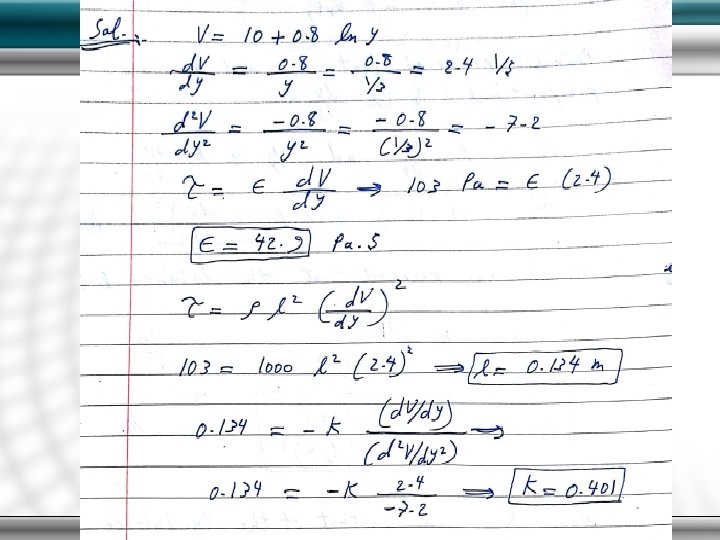 Sol. :-
V = 10 + 0.8 ln y
dV/dy = 0.8/y = 0.8/(1/3) = 2.4 1/s
d²V/dy² = -0.8/y² = -0.8/(1/3)² = -7.2
τ = ε dV/dy → 103 Pa = ε (2.4)
ε = 42.9 Pa.s
τ = ρ l² (dV/dy)²
103 = 1000 l² (2.4)² ⇒ l = 0.134 m
0.134 = -K (dV/dy)/(d²V/dy²) ⇒
0.134 = -K 2.4/-7.2 ⇒ K = 0.401